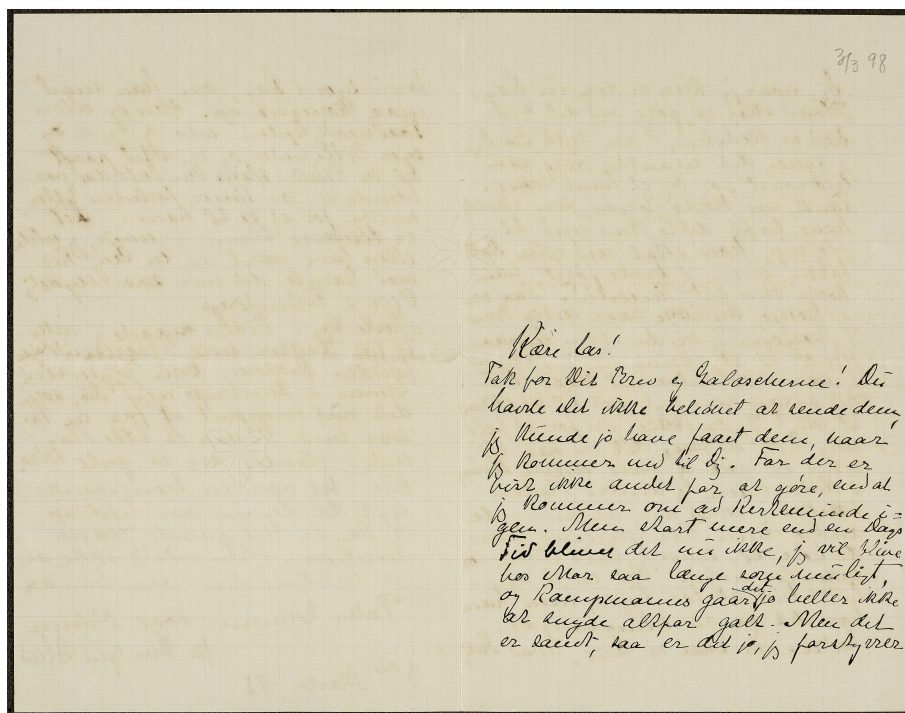 3/3 98
Kære Las!
Tak for Dit Brev og Galoscherne! Du
havde slet ikke behövet at sende dem,
jeg kunde jo have faaet dem, naar
jeg kommer ned til Dig. For der er
vist ikke andet for at göre, end at
jeg kommer om ad Kerteminde i=
gen. Men stort mere end en Dags
Tid bliver det nu ikke, jeg vil blive
hos Mor saa længe som muligt,
og Kampmanns gaar det jo heller ikke
at snyde altfor galt. Men det
er sandt, saa er det jo, jeg forstyrrer